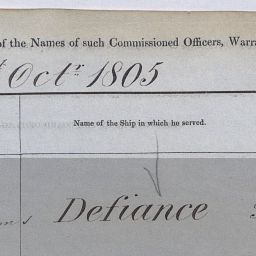 of the Names of such Commissioned Officers, Warra
t Octr 1805
Name of the Ship in which he served.
s Defiance